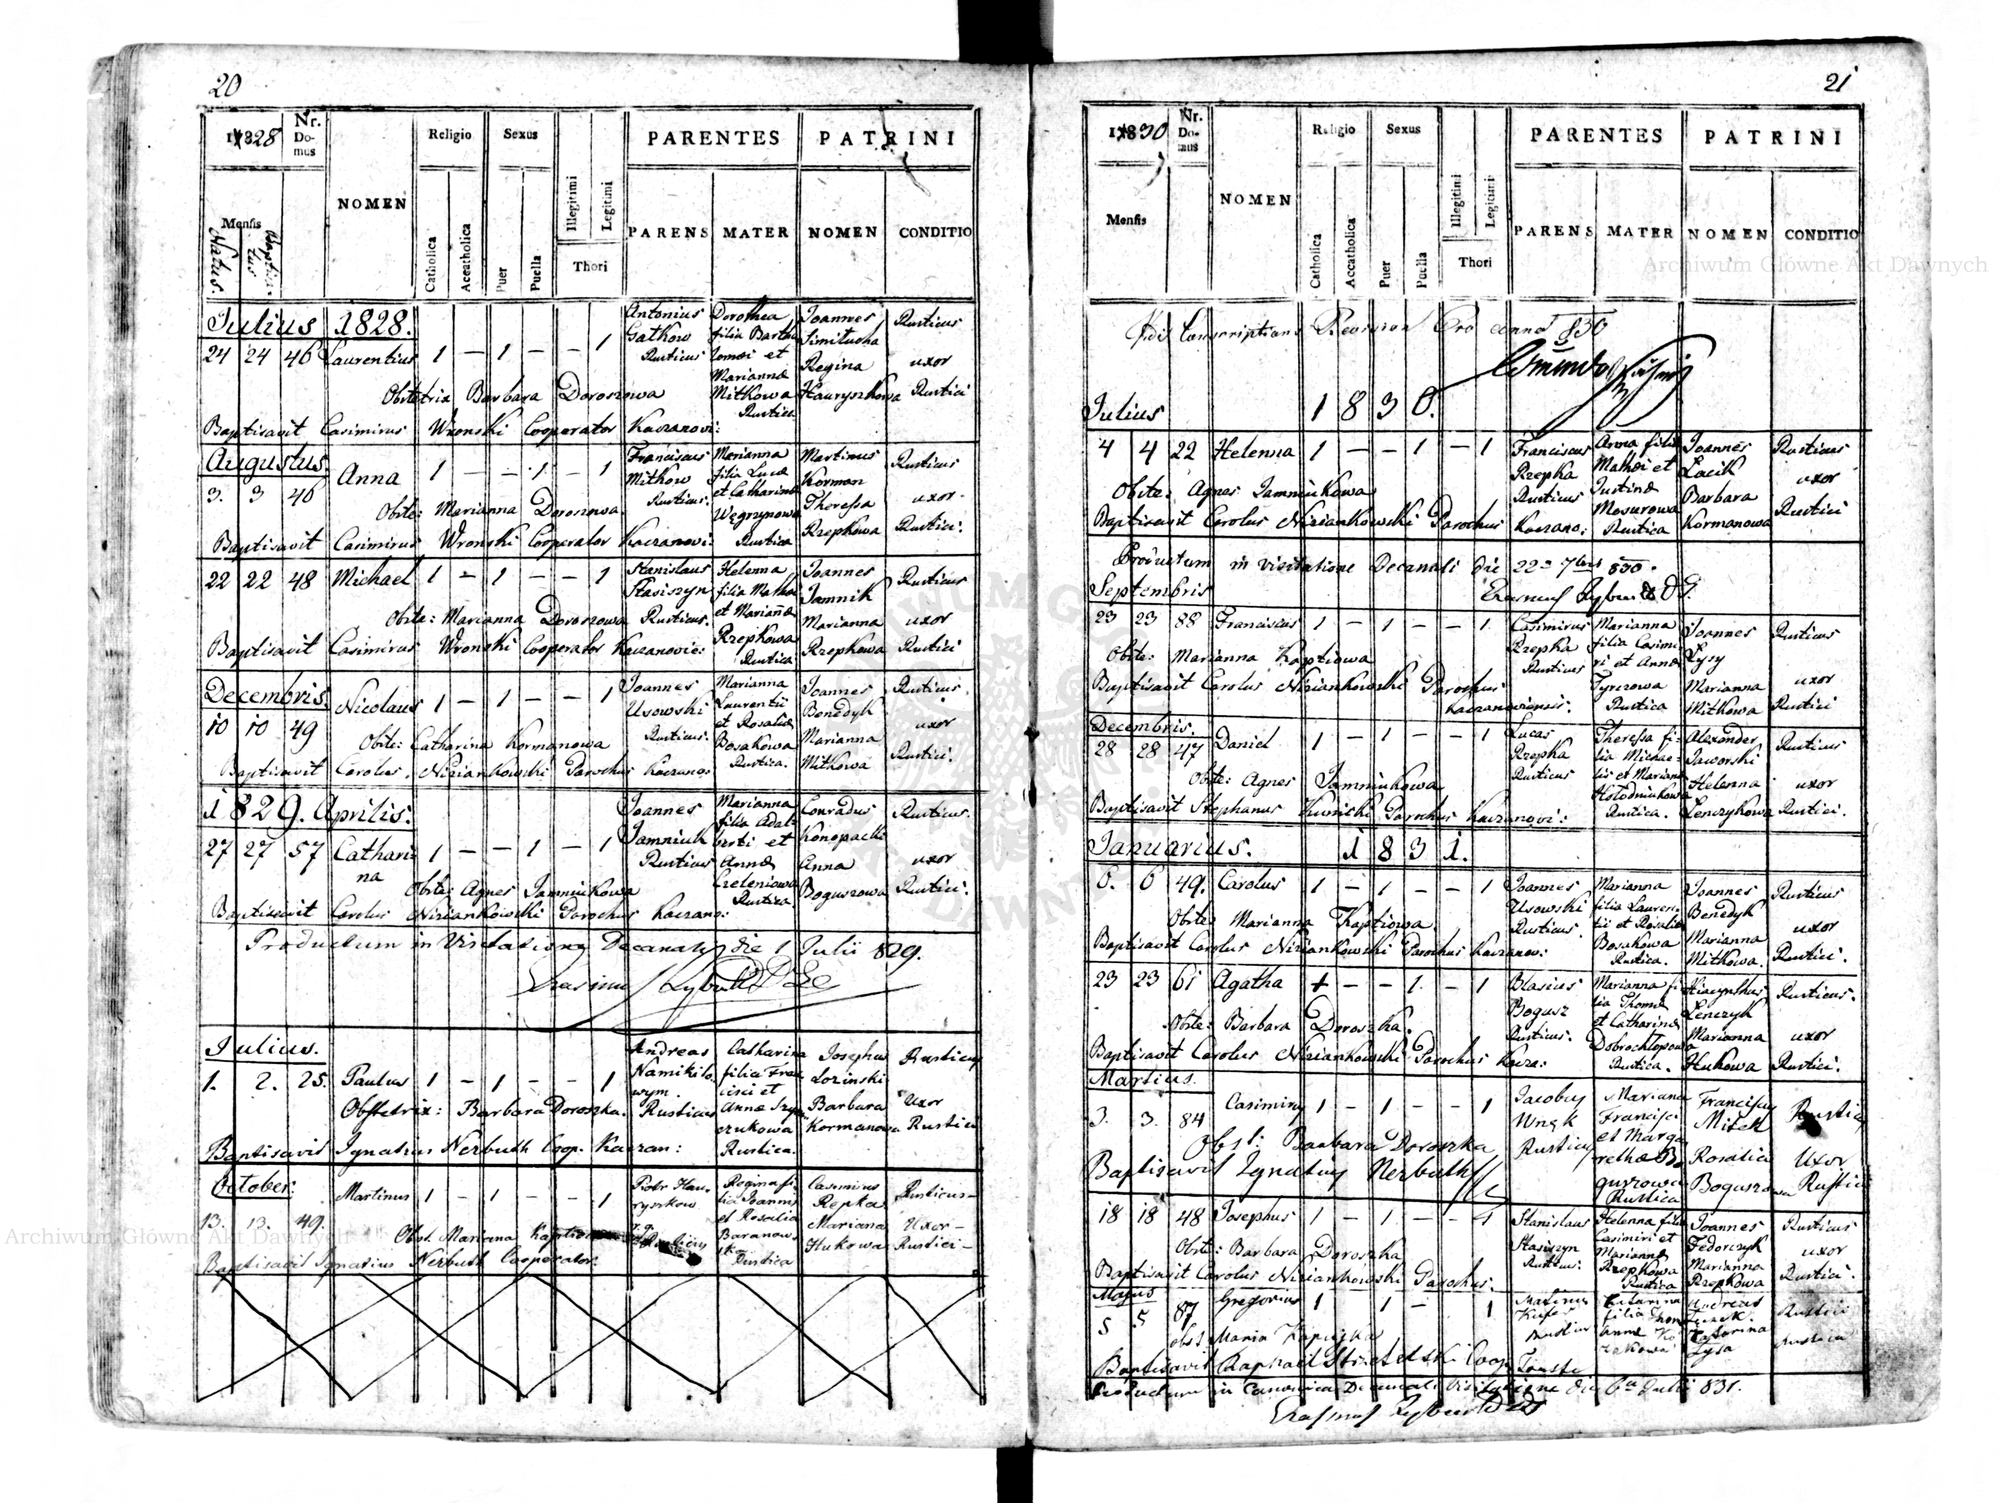 20
1828
Nr. Domus
NOMEN
Religio
Sexus
PARENTES
PATRINI
Mensis
Natus.
Baptisatus
Catholica
Accatholica
Puer
Puella
Illegitimi
Legitimi
Thori
PARENS
MATER
NOMEN
CONDITIO
Julius 1828.
24 24 46 Laurentius 1 – 1 – – 1
Antonius Gatkow Rusticus
Dorothea filia Bartholomæi et Mariannæ Mitkowa Rustica
Joannes
Regina Hauryszkowa
Rusticus
uxor
Rustici
Obstetrix Barbara Doroszowa
Baptisavit Casimirus Wronski Cooperator Kaczanovi:
Augustus.
3. 3 46 Anna 1 – – 1 – 1
Franciscus Mitkow Rusticus.
Marianna filia Lucæ et Catharinæ Węgrzynowa Rustica
Martinus Korman
Theressa Rzepkowa
Rusticus
uxor
Rustici.
Obste: Marianna Doroszowa
Baptisavit Casimirus Wronski Cooperator Kaczanovi:
22 22 48 Michael 1 – 1 – – 1
Stanislaus Stasiszyn Rusticus.
Helenna filia Mathæ et Mariannæ Rzepkowa Rustica
Joannes Jamnik
Marianna Rzepkowa
Rusticus
uxor
Rustici
Obste: Marianna Doroszowa
Baptisavit Casimirus Wronski Cooperator Kaczanovic:
Decembris.
10 10 49 Nicolaus 1 – 1 – – 1
Joannes Usowski Rusticus.
Marianna Laurentii et Rosaliæ Bosakowa Rustica.
Joannes Benedyk
Marianna Mitkowa
Rusticus.
uxor
Rustici.
Obste: Catharina Kormanowa
Baptisavit Carolus Niziankowski Parochus Kaczano:
1829. Aprilis.
27 27 57 Catharina 1 – – 1 – 1
Joannes Jamniuk Rusticus
Marianna filia Adalberti et Annæ Czeleniowa Rustica
Conradus Konopacki
Anna Boguszowa
Rusticus.
uxor
Rustici.
Obste: Agnes Jamniukowa
Baptisavit Carolus Niziankowski Parochus Kaczano:
Productum in Visitatione Decanali die 1 Julii 829.
Julius.
1. 2. 25. Paulus 1 – 1 – – 1
Andreas Rusticus
Catharina filia Francisci et Annæ Rustica.
Josephus Lozinski
Barbara Kormanowa
Rusticus
Uxor
Rustici
Obstetrix: Barbara Doroszka.
Baptisavit Ignatius Nerbuth Coop. Kaczan:
October:
13. 13. 49. Martinus 1 – 1 – – 1
Piotr Hauryszkow Rusticus
Regina filia Joannis et Rosalia Baranowska Rustica
Casimirus Repka
Mariana Hukowa
Rusticus –
Uxor –
Rustici –
Obst. Mariana
Baptisavit Ignatius Nerbuth Cooperator.
21
1830
Nr. Domus
NOMEN
Religio
Sexus
PARENTES
PATRINI
Mensis
Catholica
Accatholica
Puer
Puella
Illegitimi
Legitimi
Thori
PARENS
MATER
NOMEN
CONDITIO
Conscriptionis Revisionis Pro anno 830
Julius 1830.
4 4 22 Helenna 1 – – 1 – 1
Franciscus Rzepka Rusticus
Anna filia Mathæi et Justinæ Mazurowa Rustica
Joannes Lacik
Barbara Kormanowa
Rusticus
uxor
Rustici
Obste: Agnes Jamniukowa
Baptisavit Carolus Niziankowski Parochus Kaczano:
Productum in visitatione Decanali die 22a 7bris 830.
Septembris
23 23 88 Franciscus 1 – 1 – – 1
Casimirus Rzepka Rusticus
Marianna filia Casimiri et Annæ Tyrczowa Rustica
Joannes Łysy
Marianna Mitkowa
Rusticus
uxor
Rustici
Obste: Marianna Kaptiowa
Baptisavit Carolus Niziankowski Parochus Kaczanoviensis.
Decembris.
28 28 47 Daniel 1 – 1 – – 1
Lucas Rzepka Rusticus
Theressa filia Michaelis et Mariannæ Hołodniukowa Rustica.
Alexander Jaworski
Helenna Lenczykowa
Rusticus
uxor
Rustici.
Obste: Agnes Jamniukowa
Baptisavit Stephanus Parochus Kaczanovi:
Januarius. 1831.
6. 6 49. Carolus 1 – 1 – – 1
Joannes Usowski Rusticus.
Marianna filia Laurentii et Rosaliæ Bosakowa Rustica.
Joannes Benedyk
Marianna Mitkowa.
Rusticus
uxor
Rustici.
Obste: Marianna Kaptiowa
Baptisavit Carolus Niziankowski Parochus Kaczanov:
23 23 61 Agatha + – – 1 – 1
Blasius Bogusz Rusticus.
Marianna filia Thomæ et Catharinæ Dobrochłopowa Rustica.
Hiacynthus Lenczyk
Marianna Hukowa
Rusticus.
uxor
Rustici.
Obste: Barbara Doroszka.
Baptisavit Carolus Niziankowski Parochus Kacza:
Martius.
3. 3. 84 Casimirus 1 – 1 – – 1
Jacobus Wnęk Rusticus
Mariana Francisci et Margarethæ Boguszowa Rustica
Franciscus Mitek
Rosalia Boguszowa
Rusticus
Uxor
Rustici
Obst: Barbara Doroszka
Baptisavit Ignatius Nerbuth
18 18 48 Josephus 1 – 1 – – 1
Stanislaus Stasiszyn Rusticus.
Helenna filia Casimiri et Mariannæ Rzepkowa Rustica
Joannes Fedorczyk
Marianna Rzepkowa
Rusticus
uxor
Rustici.
Obste: Barbara Doroszka
Baptisavit Carolus Niziankowski Parochus.
Majus
5 5 87 Gregorius 1 1 – 1
Catarina filia
Andreas
Catarina Łysa
Rustici
Obst: Maria
Baptisavit Raphael Coop.
Productum in Canonica Decanali Visitatione die 6a Julii 831.
Archiwum Główne Akt Dawnych
Archiwum Główne Akt Dawnych